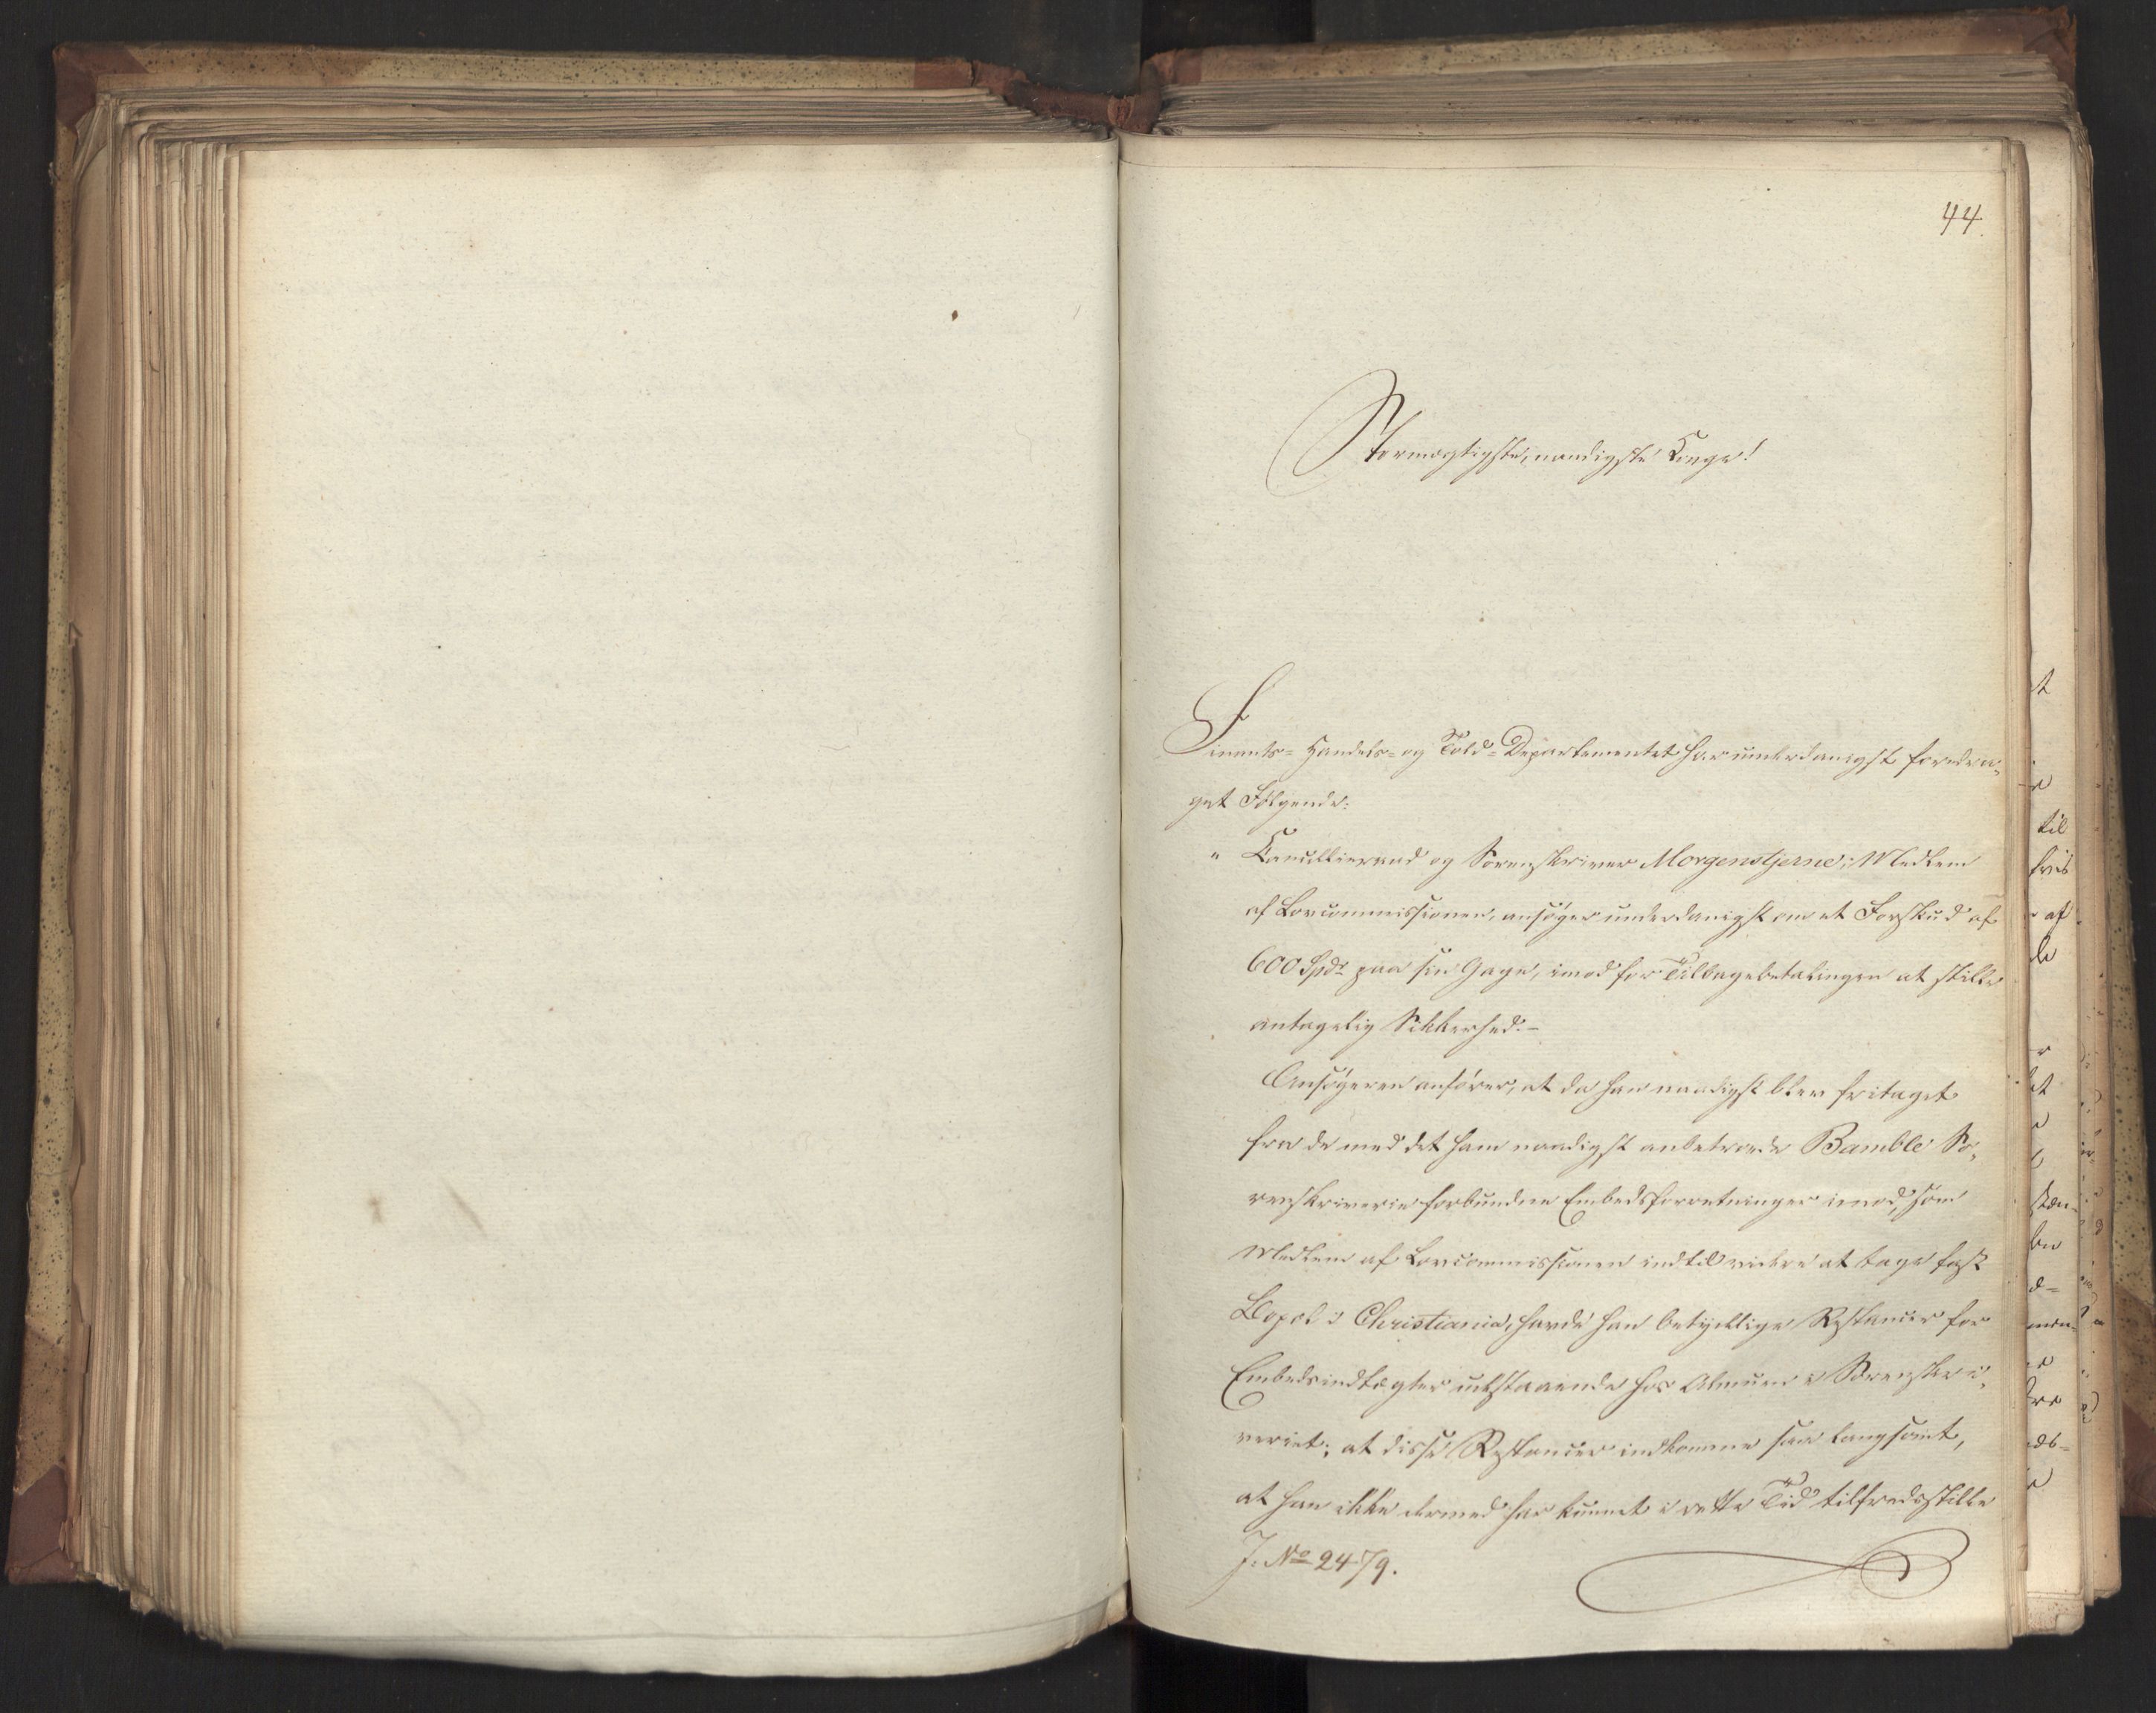 44.
Stormægtigste, naadigste Konge!
Finants- Handels- og Told-Departementet har underdanigst foredra-
get Følgende:
" Cancellieraad og Sorenskriver Morgenstjerne, Medlem
af Lovcommissionen, ansøger underdanigst om et Forskud af
600 Spdr paa sin Gage, imod for Tilbagebetalingen at stille
antagelig Sikkerhed.-
Ansøgeren anfører, at da han naadigst blev fritaget
fra de med det ham naadigst anbetroede Bamble So-
renskriverie forbundne Embedsforretninger imod, som
Medlem af Lovcommissionen indtil videre at tage fast
Bopæl i Christiania, havde han betydelige Restancer for
Embedsindtægter udestaaende hos Almuen i Sorenskri-
veriet; at disse Restancer indkomme saa langsomt,
at han ikke dermed har kunnet i rette Tid tilfredsstille
J. No 2479.